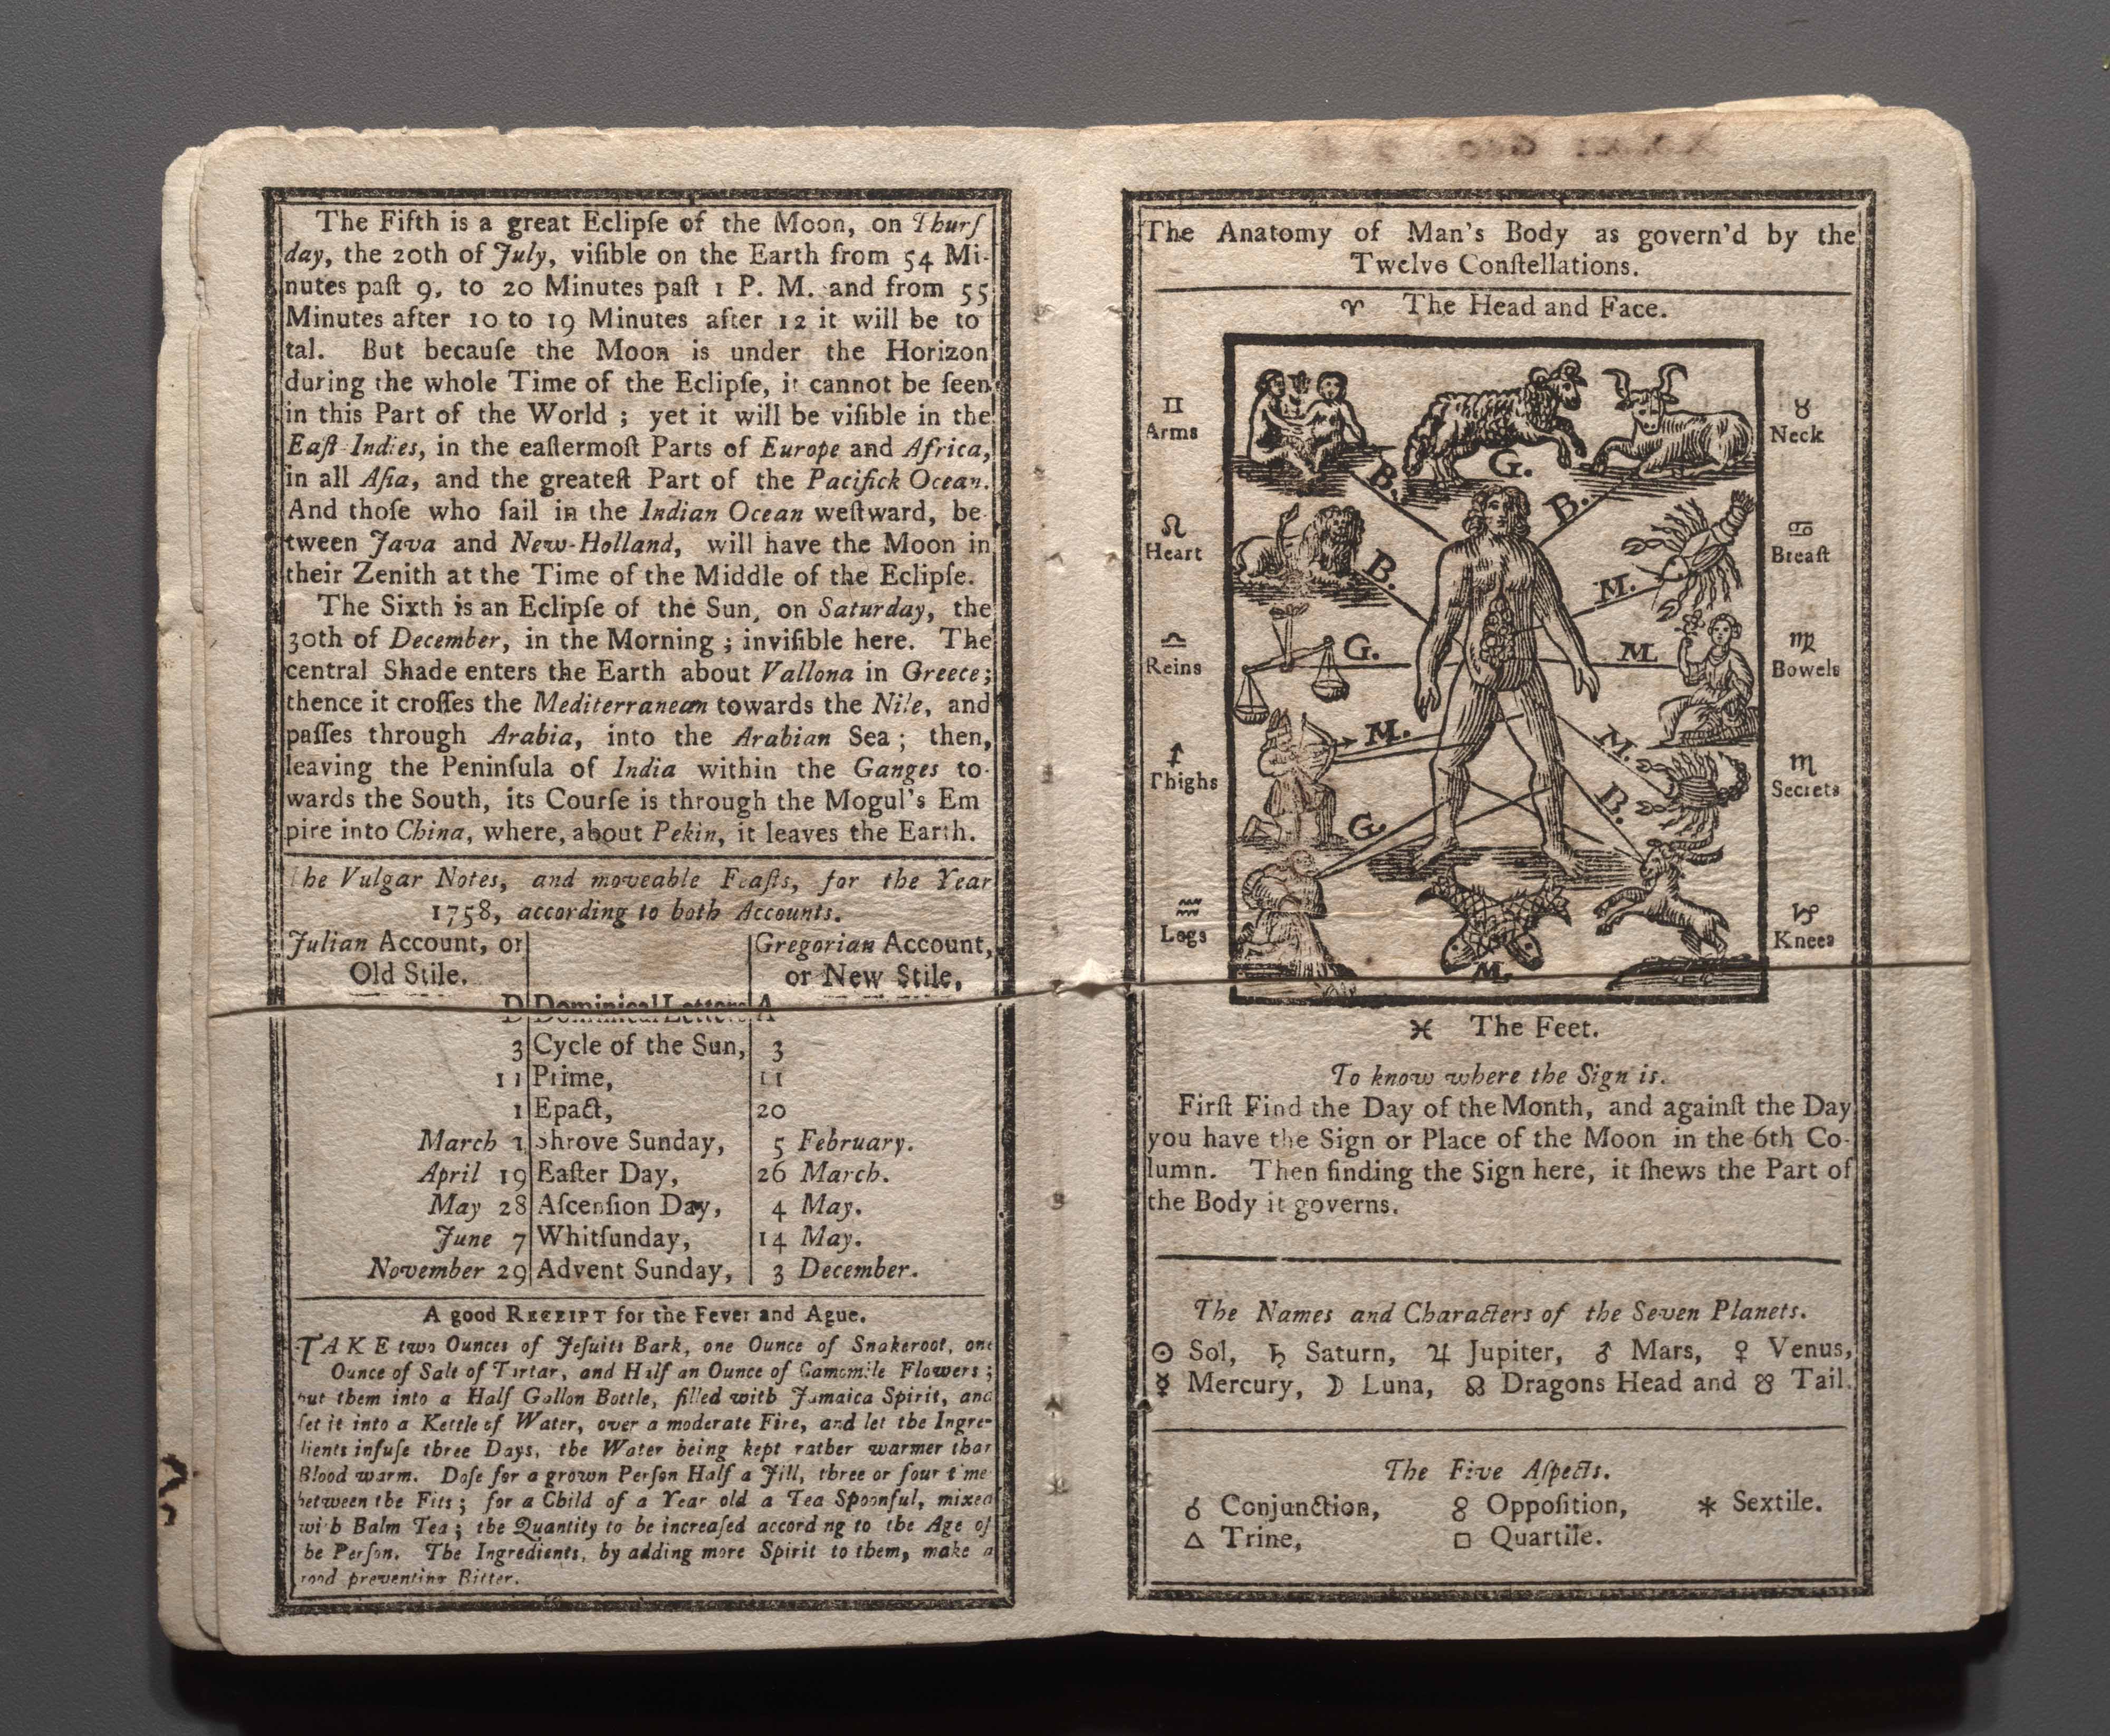 The Fifth is a great Eclipſe of the Moon, on Thurſ
day, the 20th of July, viſible on the Earth from 54 Mi-
nutes paſt 9, to 20 Minutes paſt 1 P. M. and from 55
Minutes after 10 to 19 Minutes after 12 it will be to
tal. But becauſe the Moon is under the Horizon
during the whole Time of the Eclipſe, it cannot be ſeen
in this Part of the World ; yet it will be viſible in the
Eaſt-Indies, in the eaſtermoſt Parts of Europe and Africa,
in all Aſia, and the greateſt Part of the Pacifick Ocean.
And thoſe who ſail in the Indian Ocean weſtward, be
tween Java and New-Holland, will have the Moon in
their Zenith at the Time of the Middle of the Eclipſe.
The Sixth is an Eclipſe of the Sun, on Saturday, the
30th of December, in the Morning ; inviſible here. The
central Shade enters the Earth about Vallona in Greece;
thence it croſſes the Mediterranean towards the Nile, and
paſſes through Arabia, into the Arabian Sea ; then,
leaving the Peninſula of India within the Ganges to-
wards the South, its Courſe is through the Mogul's Em
pire into China, where, about Pekin, it leaves the Earth.
The Vulgar Notes, and moveable Feaſts, for the Year
1758, according to both Accounts.
Julian Account, or Gregorian Account,
Old Stile. or New Stile,
D Dominical Letters A
3 Cycle of the Sun, 3
11 Prime, 11
1 Epact, 20
March 1 Shrove Sunday, 5 February.
April 19 Eaſter Day, 26 March.
May 28 Aſcenſion Day, 4 May.
June 7 Whitſunday, 14 May.
November 29 Advent Sunday, 3 December.
A good RECEIPT for the Fever and Ague.
TAKE two Ounces of Jeſuits Bark, one Ounce of Snakeroot, one
Ounce of Salt of Tartar, and Half an Ounce of Camomile Flowers ;
put them into a Half Gallon Bottle, filled with Jamaica Spirit, and
ſet it into a Kettle of Water, over a moderate Fire, and let the Ingre-
dients infuſe three Days, the Water being kept rather warmer than
Blood warm. Doſe for a grown Perſon Half a Jill, three or four time
between the Fits ; for a Child of a Year old a Tea Spoonful, mixed
with Balm Tea ; the Quantity to be increaſed according to the Age of
the Perſon. The Ingredients, by adding more Spirit to them, make a
good preventing Bitter.
The Anatomy of Man's Body as govern'd by the
Twelve Conſtellations.
♈ The Head and Face.
♊ Arms
♉ Neck
B. G. B.
♌ Heart
♋ Breaſt
B. M.
♎ Reins
♍ Bowels
G. M
♐ Thighs
♏ Secrets
M. M.
G. B.
♒ Legs
♑ Knees
M.
♓ The Feet.
To know where the Sign is.
Firſt Find the Day of the Month, and againſt the Day
you have the Sign or Place of the Moon in the 6th Co-
lumn. Then finding the Sign here, it ſhews the Part of
the Body it governs.
The Names and Characters of the Seven Planets.
☉ Sol, ♄ Saturn, ♃ Jupiter, ♂ Mars, ♀ Venus,
☿ Mercury, ☽ Luna, ☊ Dragons Head and ☋ Tail.
The Five Aſpects.
☌ Conjunction, ☍ Oppoſition, ⚹ Sextile.
△ Trine, □ Quartile.